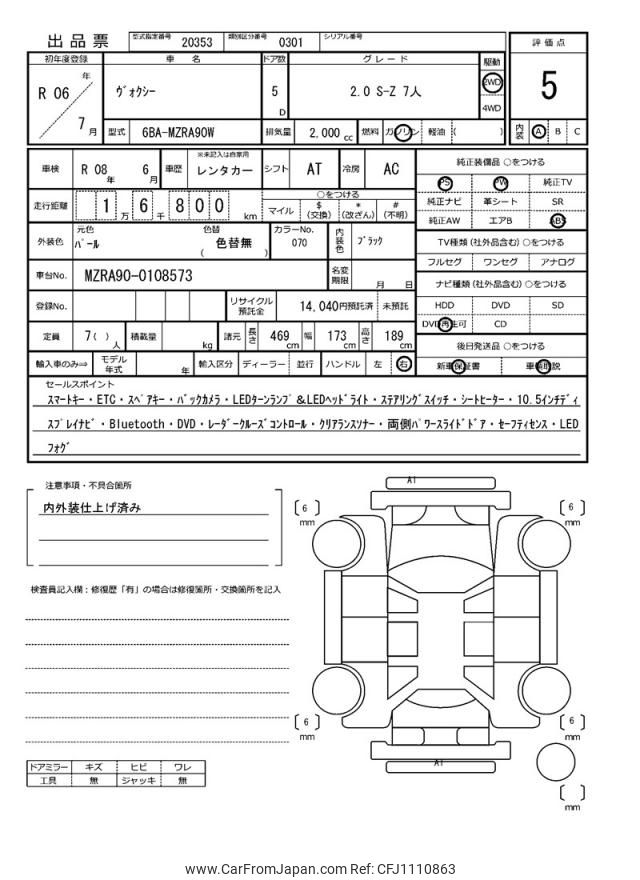 出品票 型式指定番号 20353 類別区分番号 0301 シリアル番号
評価点
5
内装 A B C
初年度登録 車名 ドア数 グレード 駆動
R 06 年 7 月 ヴォクシー 5 D 2.0 S-Z 7人 2WD 4WD
型式 6BA-MZRA90W 排気量 2,000 cc 燃料 ガソリン 軽油 ( )
車検 R 08 年 6 月 車歴 ※未記入は自家用 レンタカー シフト AT 冷房 AC
走行距離 1 万 6 千 8 0 0 km ○をつける
マイル $ (交換) * (改ざん) # (不明)
外装色 元色 パール 色替 色替無 ( ) カラーNo. 070 内装色 ブラック
車台No. MZRA90-0108573 名変期限 月 日
登録No. リサイクル預託金 14,040円預託済 未預託
定員 7( ) 人 積載量 kg 諸元 長さ 469 cm 幅 173 cm 高さ 189 cm
輸入車のみ⇒ モデル年式 年 輸入区分 ディーラー 並行 ハンドル 左 右
純正装備品 ○をつける
PS PW 純正TV
純正ナビ 革シート SR
純正AW エアB ABS
TV種類 (社外品含む) ○をつける
フルセグ ワンセグ アナログ
ナビ種類 (社外品含む) ○をつける
HDD DVD SD
DVD再生可 CD
後日発送品 ○をつける
新車保証書 車輌取説
セールスポイント
スマートキー・ETC・スペアキー・バックカメラ・LEDターンランプ&LEDヘッドライト・ステアリングスイッチ・シートヒーター・10.5インチディ
スプレイナビ・Bluetooth・DVD・レーダークルーズコントロール・クリアランスソナー・両側パワースライドドア・セーフティセンス・LED
フォグ
注意事項・不具合箇所
内外装仕上げ済み
検査員記入欄：修復歴「有」の場合は修復箇所・交換箇所を記入
ドアミラー キズ ヒビ ワレ
工具 無 ジャッキ 無
A1
6 mm
6 mm
6 mm
6 mm
A1
mm
www.CarFromJapan.com Ref: CFJ1110863